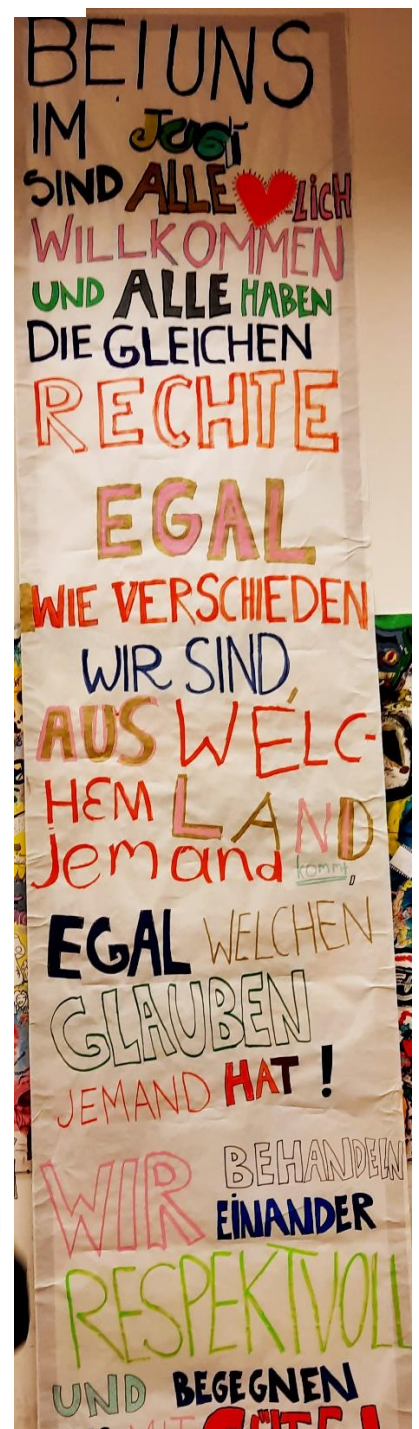 BEI UNS
IM JUGI
SIND ALLE ❤-LICH
WILLKOMMEN
UND ALLE HABEN
DIE GLEICHEN
RECHTE
EGAL
WIE VERSCHIEDEN
WIR SIND,
AUS WELC-
HEM LAND
Jemand kommt,
EGAL WELCHEN
GLAUBEN
JEMAND HAT!
WIR BEHANDELN
EINANDER
RESPEKTVOLL
UND BEGEGNEN
MIT GÜTE!